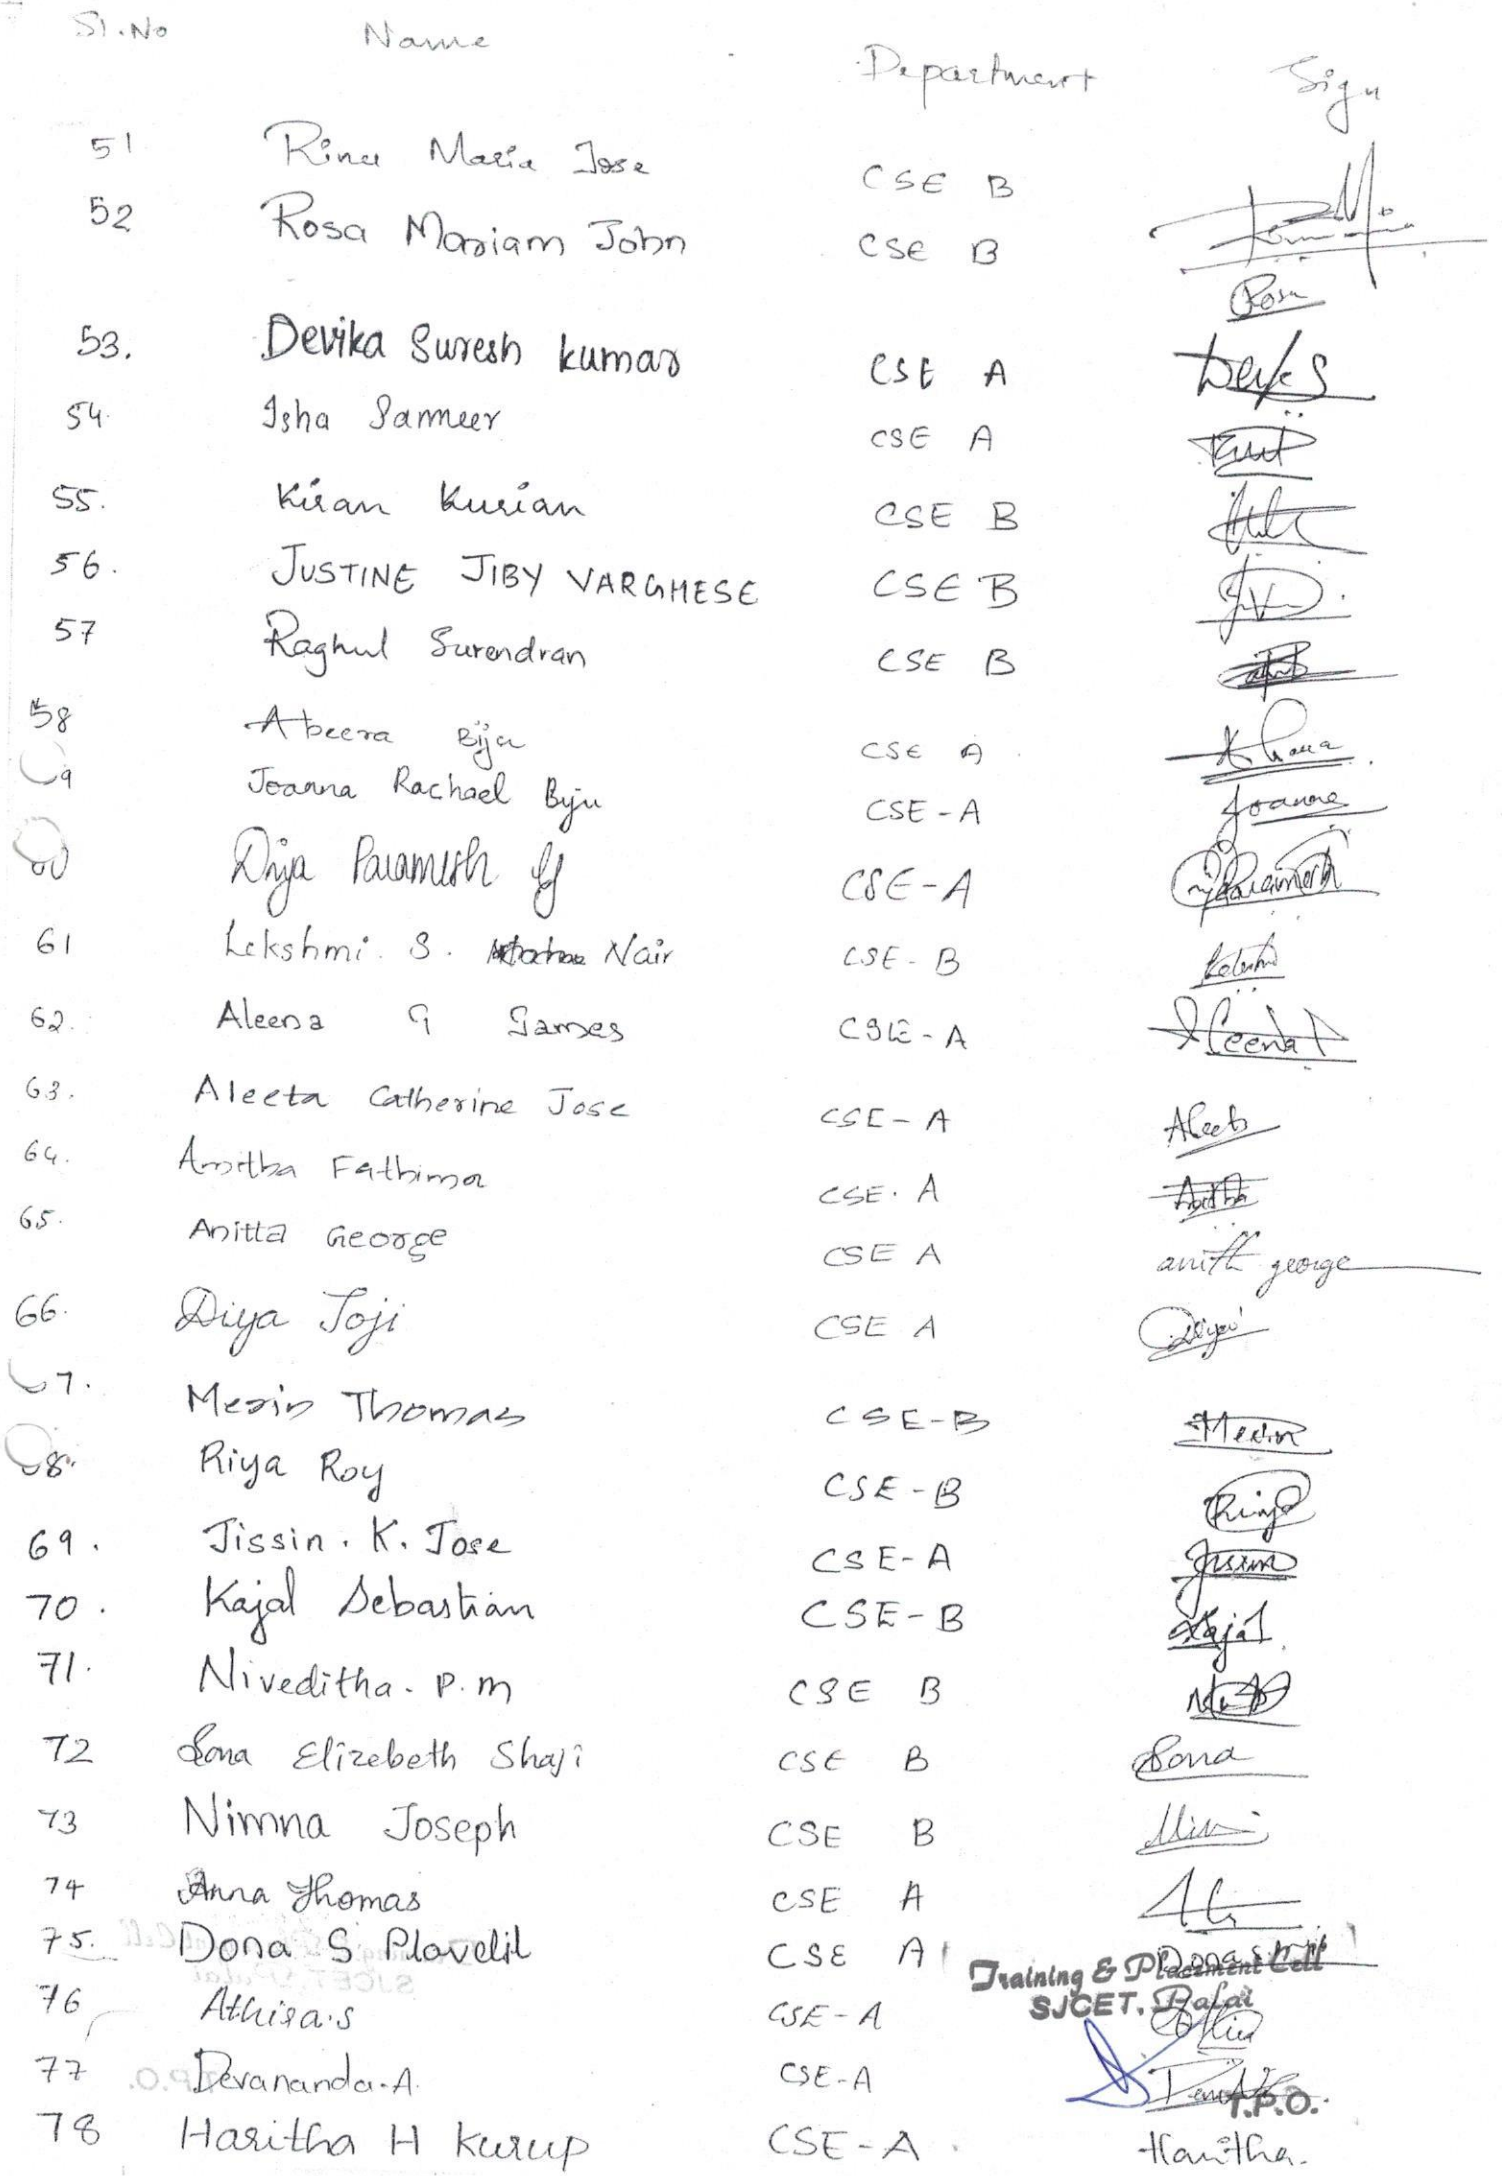 Sl.No Name Department Sign
51 Rinu Maria Jose CSE B
52 Rosa Mariam John CSE B
Rosa
53. Devika Suresh kumar CSE A
54. Isha Sameer CSE A
55. Kiran Kurian CSE B
56. JUSTINE JIBY VARGHESE CSE B
57 Raghul Surendran CSE B
58 Abeera Biju CSE A
9 Joanna Rachael Biju CSE-A Joanna
60 Diya Paramesh CSE-A
61 Lekshmi. S. Nair CSE-B
62. Aleena G James CSE-A Aleena
63. Aleeta Catherine Jose CSE-A Aleeta
64. Amitha Fathima CSE. A
65. Anitta George CSE A anitta george
66. Diya Joji CSE A Diya
7. Merin Thomas CSE-B Merin
8. Riya Roy CSE-B Riya
69. Jissin. K. Jose CSE-A Jissin
70. Kajal Sebastian CSE-B Kajal
71. Niveditha. P.M CSE B
72 Sona Elizebeth Shaji CSE B Sona
73 Nimna Joseph CSE B
74 Anna Thomas CSE A
75. Dona S Plavelil CSE A Dona S
Training & Placement Cell
SJCET, Palai
76 Athira.S CSE-A
77 Devananda.A. CSE-A
T.P.O.
78 Haritha H Kurup CSE-A. Haritha.